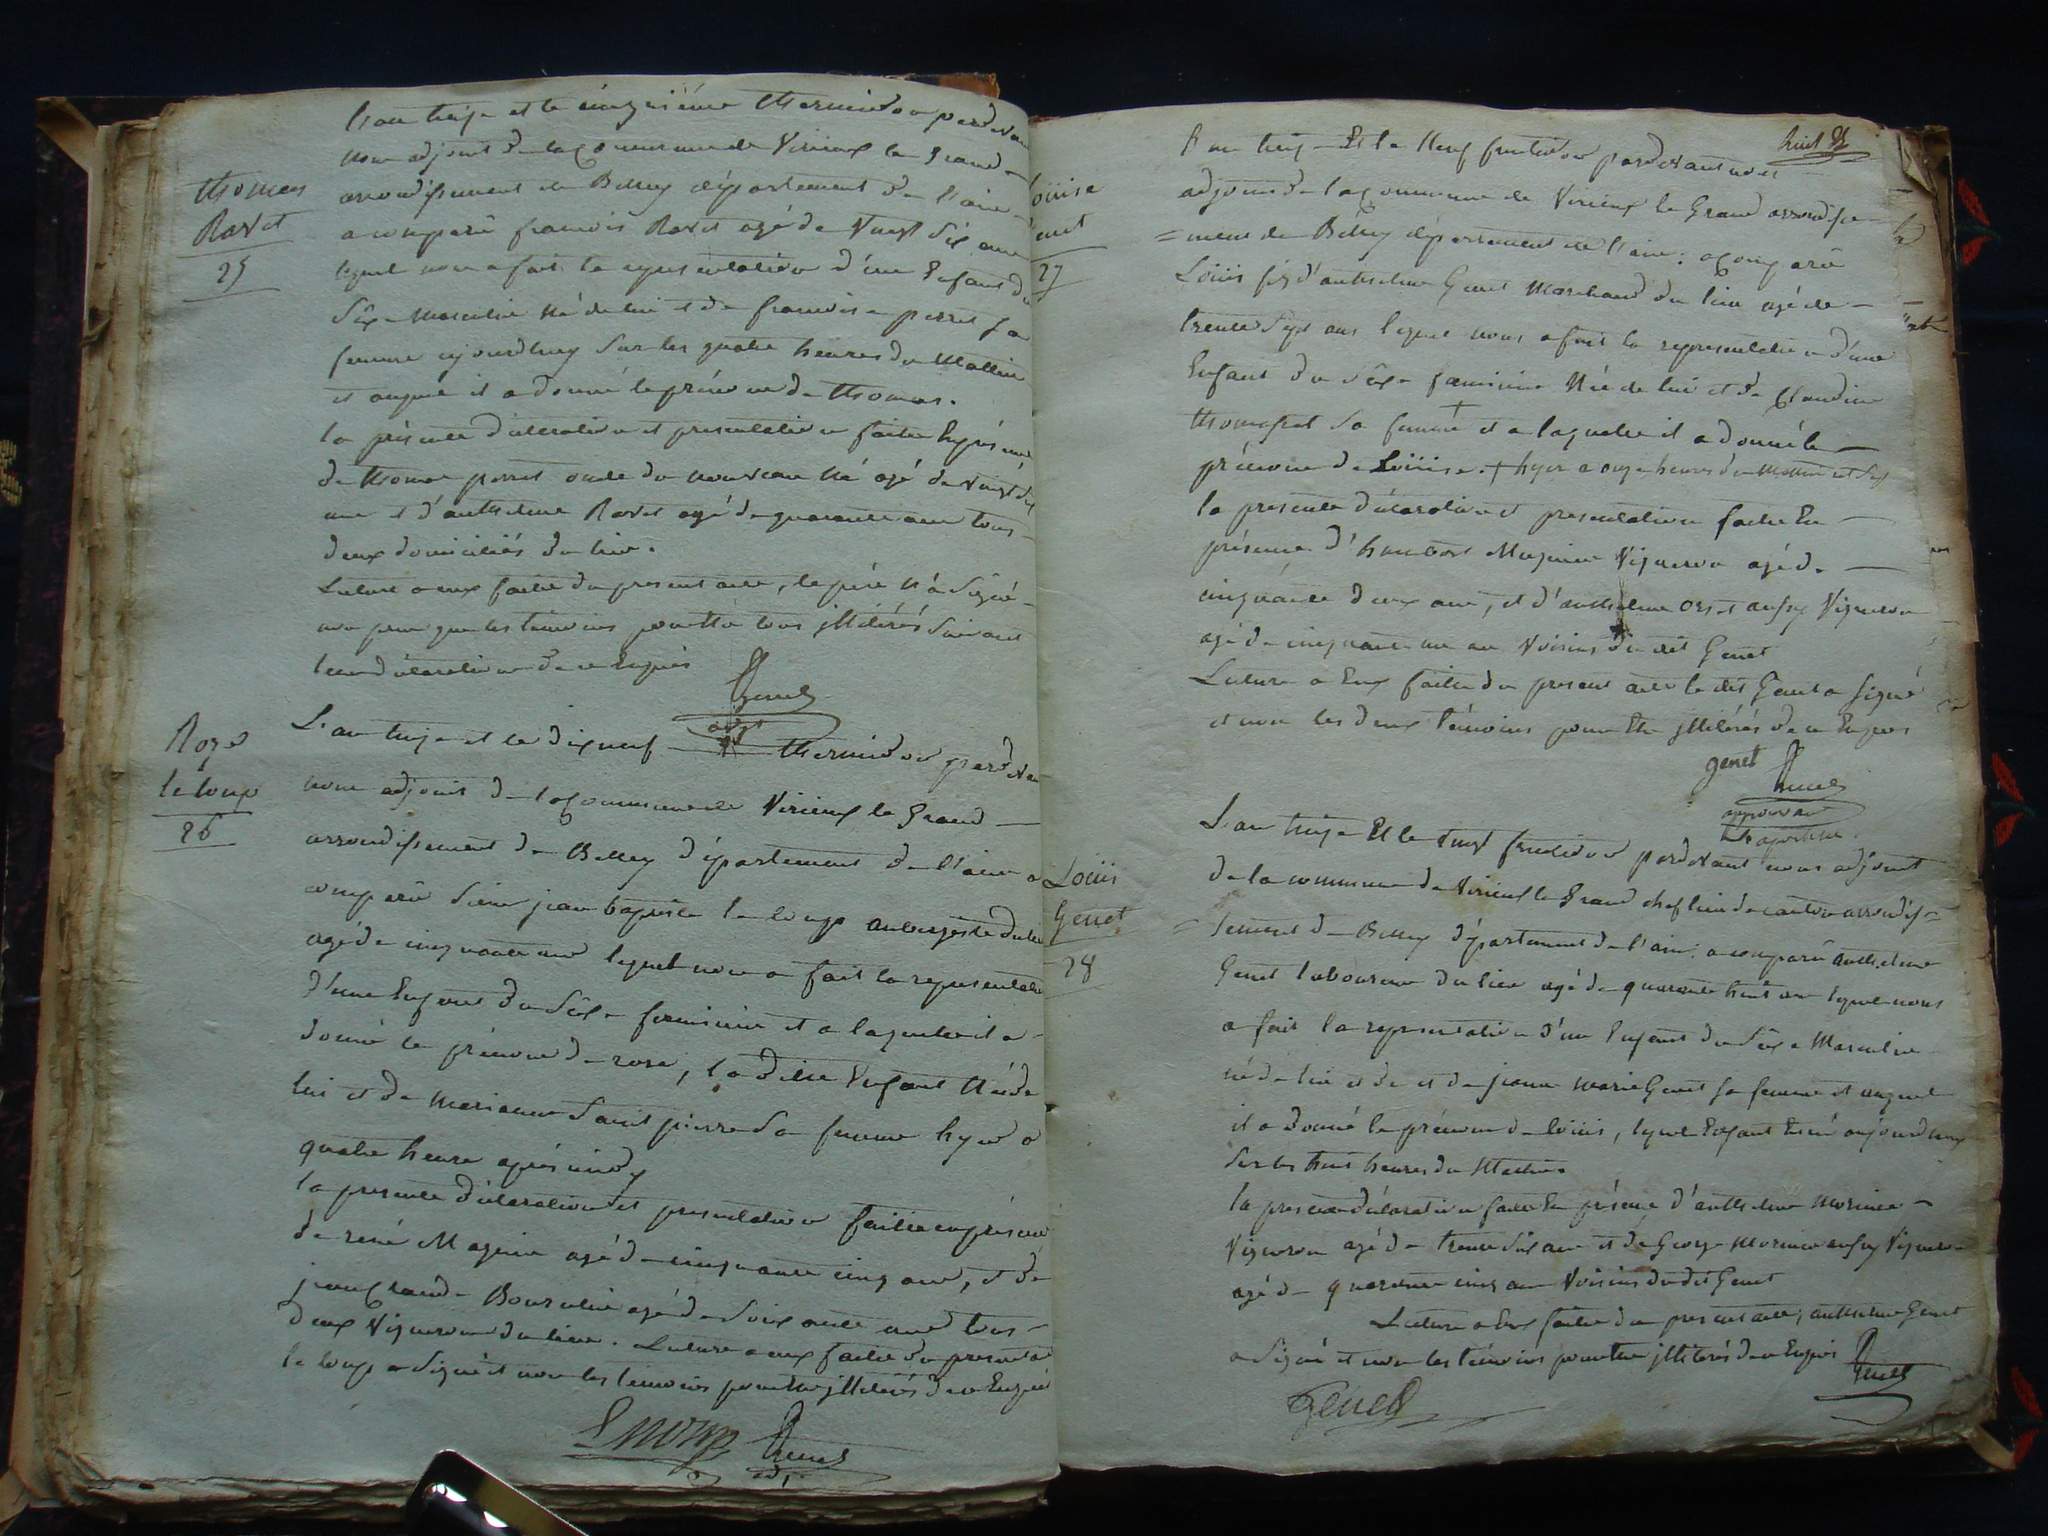 thomas
Ravet
25
L'an treize et le cinquième thermidor pardevant
nous adjoint de la Commune de Virieux le Grand
arrondissement de Belley département de l'ain
a comparû francois Ravet agé de vingt six ans
lequel nous a fait la representation d'un Enfant du
Sêxe Masculin né de lui et de francoise perret sa
femme ajourdhuy sur les quatre heures du Mattin
et auquel il a donné le prénom de thomas.
la présente déclaration et presentation faitte En présence
de thomas perret oncle du nouveau né agé de vingt six
ans et d'anthelme Ravet agé de quarante ans tous
deux domiciliés du lieu.
Lecture a eux faitte du present acte, le père n'a signé
non plus que les témoins pour être tous illitérés suivant
leur déclaration de ce Enquis
Genet
adjt
Roze
le loup
26
L'an treize et le dixneuf thermidor pardevant
nous adjoint de la Commune de Virieux le Grand
arrondissement de Belley département de l'ain a
comparû Sieur jean baptiste le loup aubergiste du lieu
agé de cinquante ans lequel nous a fait la representation
d'une Enfant du Sêxe feminin et a laquelle il a
donné le prénom de rose, la dite Enfant Née de
lui et de Marianne Saint pierre sa femme hyer a
quatre heure après midy
la presente déclaration et presentation faitte en présence
de rené Magnin agé de cinquante cinq ans, et de
jean Claude Boursolin agé de soixante ans tous
deux Vigneron du lieu. Lecture a eux faitte du present acte
le loup a Signé et non les témoins pour être illiterés de ce Enquis
Leloup Genet
adj.
huit
Louise
Genet
27
L'an treize Et le Neuf fructidor pardevant nous
adjoint de la Commune de Virieux le Grand arrondisse
=ment de Belley département de l'ain: a Comparû
Loüis fiz d'anthelme Genet Marchand du lieu agé de
trente Sept ans lequel nous a fait la representation d'une
Enfant du Sêxe feminin Née de lui et de Claudine
thomasset sa femme + et a laquelle il a donné le
prénom de Loüise. + hyer a onze heures du Mattin
la presente déclaration et presentation faitte En
présence d'humbert Magnin Vigneron agé de
cinquante deux ans, et d'anthelme Orset aussy Vigneron
agé de cinquante un an Voisins du dit Genet
Lecture a Eux faitte du present acte le dit Genet a signé
et non les deux témoins pour être illiterés de ce Enquis
genet Genet
approuvant
L'apostille.
Loüis
Genet
28
L'an treize Et le vingt fructidor pardevant nous adjoint
de la commune de Virieux le Grand chef lieu de canton arrondis=
=sement de Belley département de l'ain: a comparû anthelme
Genet laboureur du lieu agé de quarante huit ans lequel nous
a fait la representation d'un Enfant du Sêxe Masculin
né de lui et de et de jeanne marie Genet sa femme et auquel
il a donné le prénom de loüis, lequel Enfant Est né aujourdhuy
sur les huit heures du Mattin.
la presente déclaration faitte En présence d'anthelme Morinier
Vigneron agé de trente six ans et de George Morinier aussy Vigneron
agé de quarante cinq ans Voisins du dit Genet
Lecture a Eux faitte du present acte, anthelme Genet
a Signé et non les témoins pour être illiterés de ce Enquis
Genet
Genet